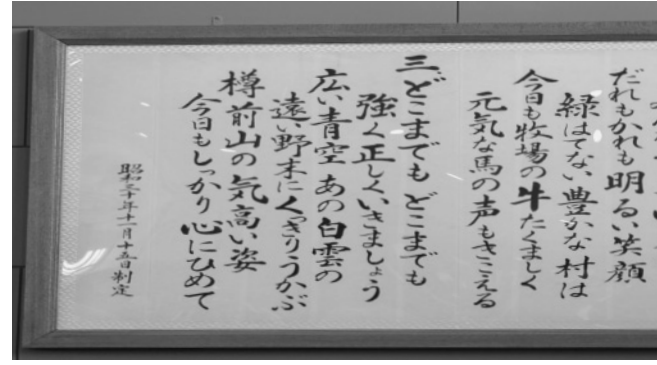 だれもかれも明るい笑顔
緑はてない豊かな村は
今日も牧場の牛たくましく
元気な馬の声もきこえる
三、どこまでも どこまでも
強く正しくいきましょう
広い青空 あの白雲の
遠い野末にくっきりうかぶ
樽前山の気高い姿
今日もしっかり心にひめて
昭和三十年十一月十五日制定